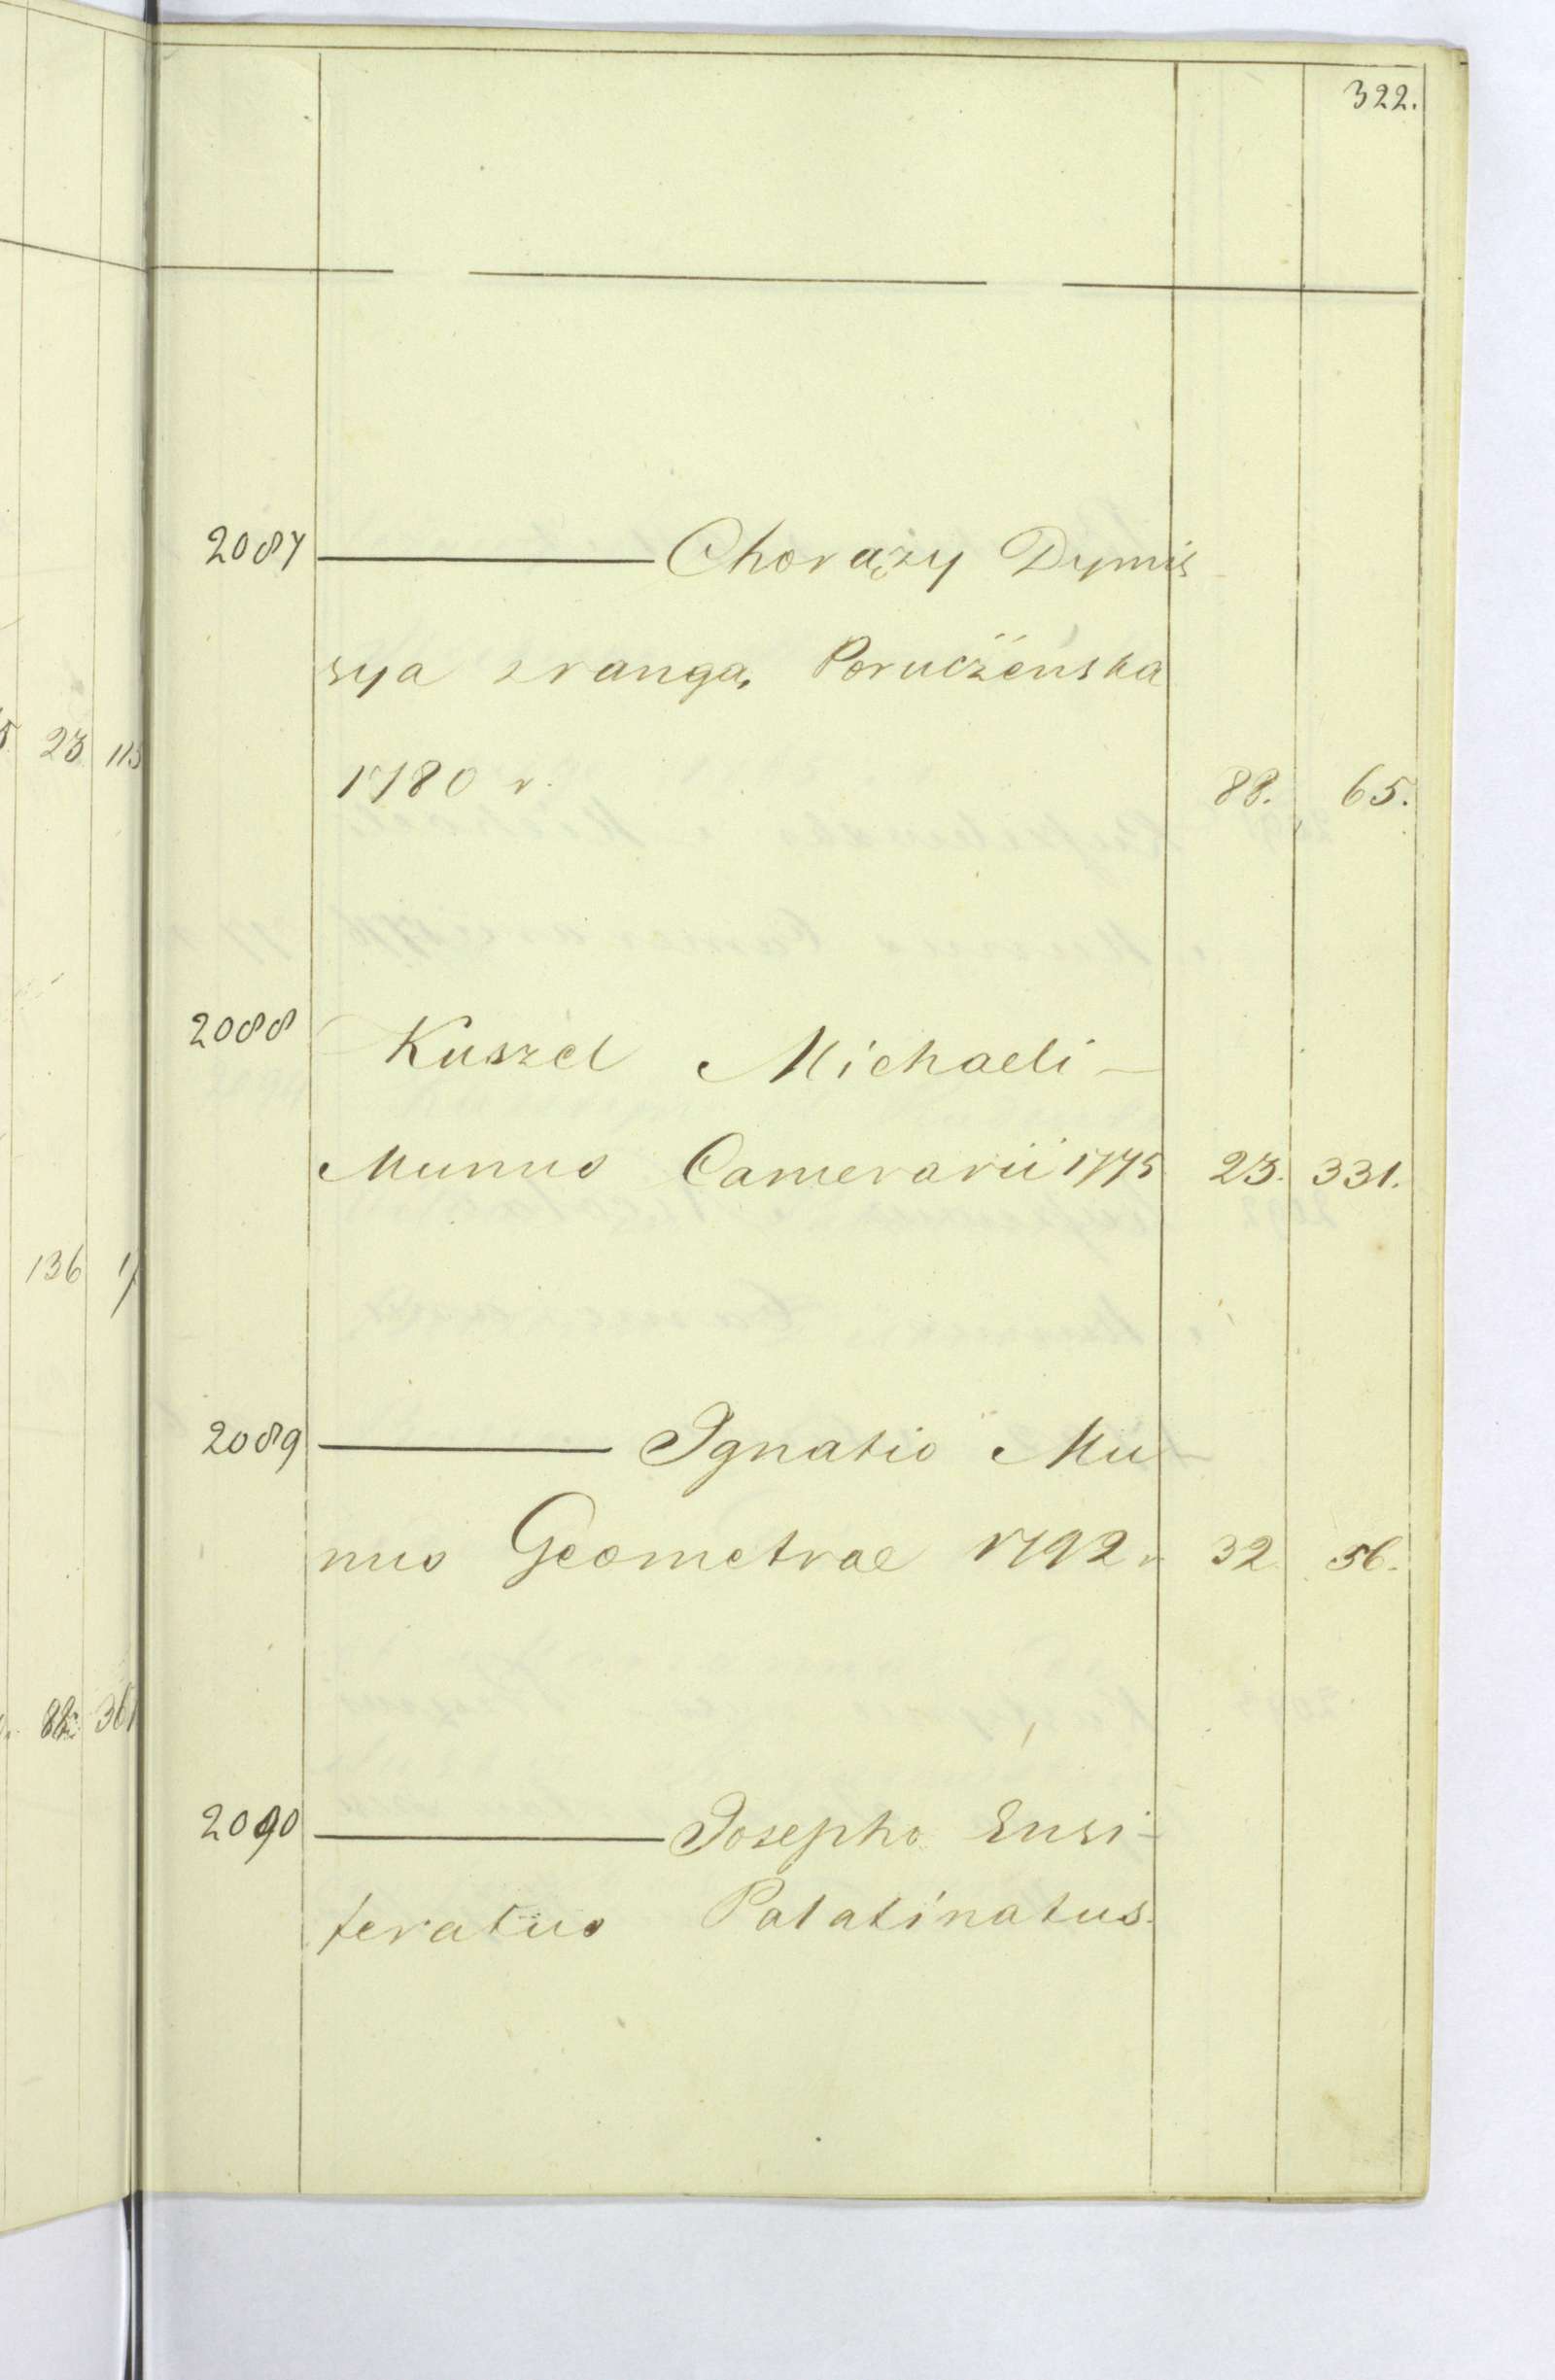 322.
2087 ——— Chorąży Dymis
sya z rangą Poruczeńska
1780 r. 88. 65.
2088 Kuszel Michaeli —
Munus Camerarii 1775 23. 331.
2089 ——— Ignatio Mu-
nus Geometrae 1792 r 32 56.
2090 ——— Josepho Ensi-
feratus Palatinatus.
23
136
88.